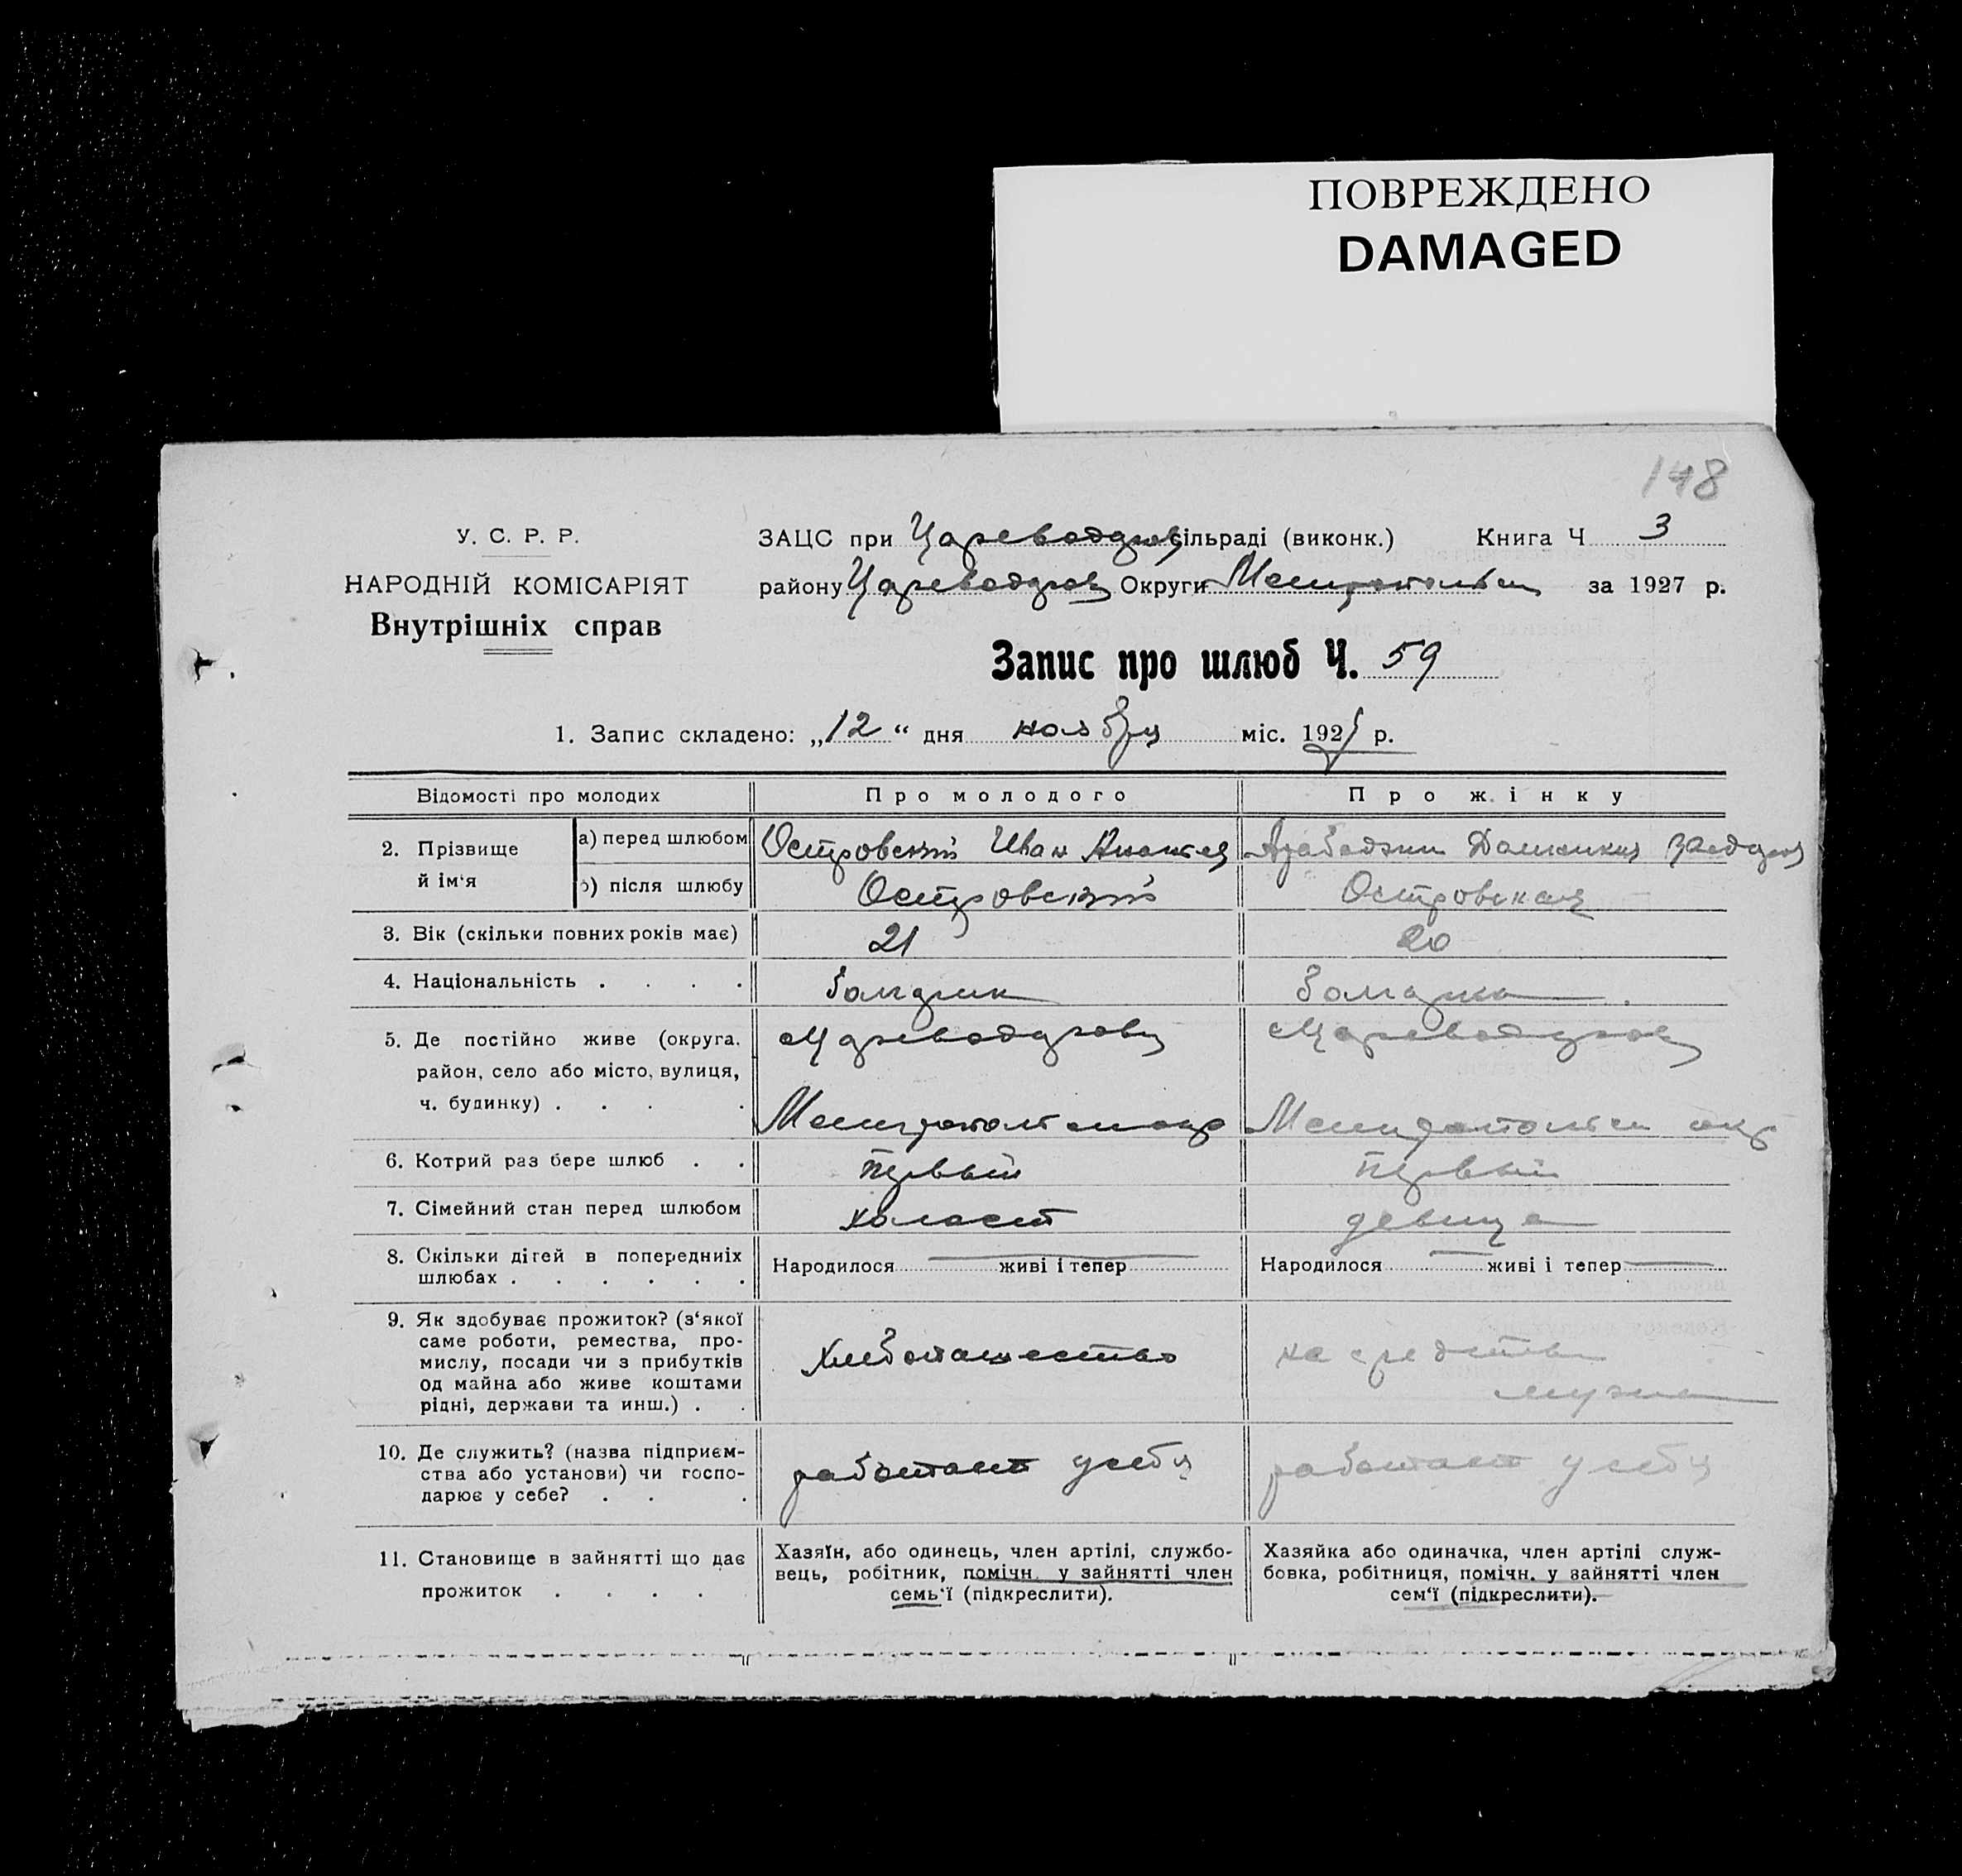 ПОВРЕЖДЕНО
DAMAGED
148
У. С. Р. Р.
НАРОДНІЙ КОМІСАРІЯТ
Внутрішніх справ
ЗАЦС при Цареводаров сільраді (виконк.) Книга Ч 3
району Цареводаров Округи за 1927 р.
Запис про шлюб Ч. 59
1. Запис складено: „12“ дня ноября міс. 1927 р.
Відомості про молодих Про молодого Про жінку
2. Прізвище й ім‘я
а) перед шлюбом Островский Иван Арабаджи
б) після шлюбу Островский Островская
3. Вік (скільки повних років має) 21 20
4. Національність . . . . болгарин болгарка
5. Де постійно живе (округа,
район, село або місто, вулиця,
ч. будинку) . . . .
6. Котрий раз бере шлюб . . первый первый
7. Сімейний стан перед шлюбом холост девица
8. Скільки дітей в попередниіх
шлюбах . . . . . .
Народилося живі і тепер Народилося живі і тепер
9. Як здобуває прожиток? (з‘якої
саме роботи, ремества, про-
мислу, посади чи з прибутків
од майна або живе коштами
рідні, держави та инш.) . .
Хлебопашество на средства
мужа
10. Де служить? (назва підприєм-
ства або установи) чи госпо-
дарює у себе? . . .
работает у себя работает у себя
11. Становище в зайнятті що дає
прожиток . . . .
Хазяїн, або одинець, член артілі, службо-
вець, робітник, помічн. у зайнятті член
семь‘ї (підкреслити).
Хазяйка або одиначка, член артілі служ-
бовка, робітниця, помічн. у зайнятті член
сем‘ї (підкреслити).